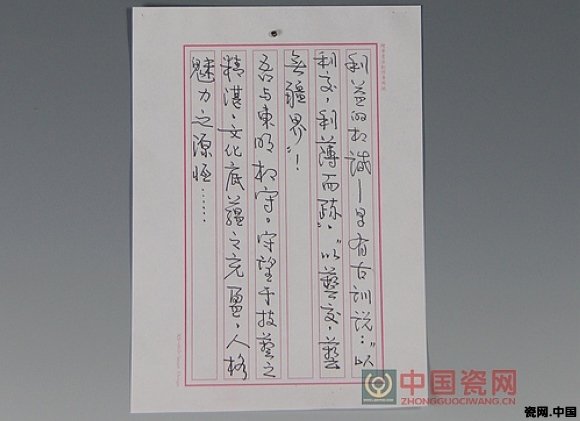 利益的相識—早有古訓說："以
利交，利薄而疏"，"以藝交，藝
無疆界"！
吾与東明相守。守望于技藝之
精湛，文化底蘊之充盈，人格
魅力之源恒……
中国瓷网
ZHONGGUOCIWANG.CN
瓷网.中国